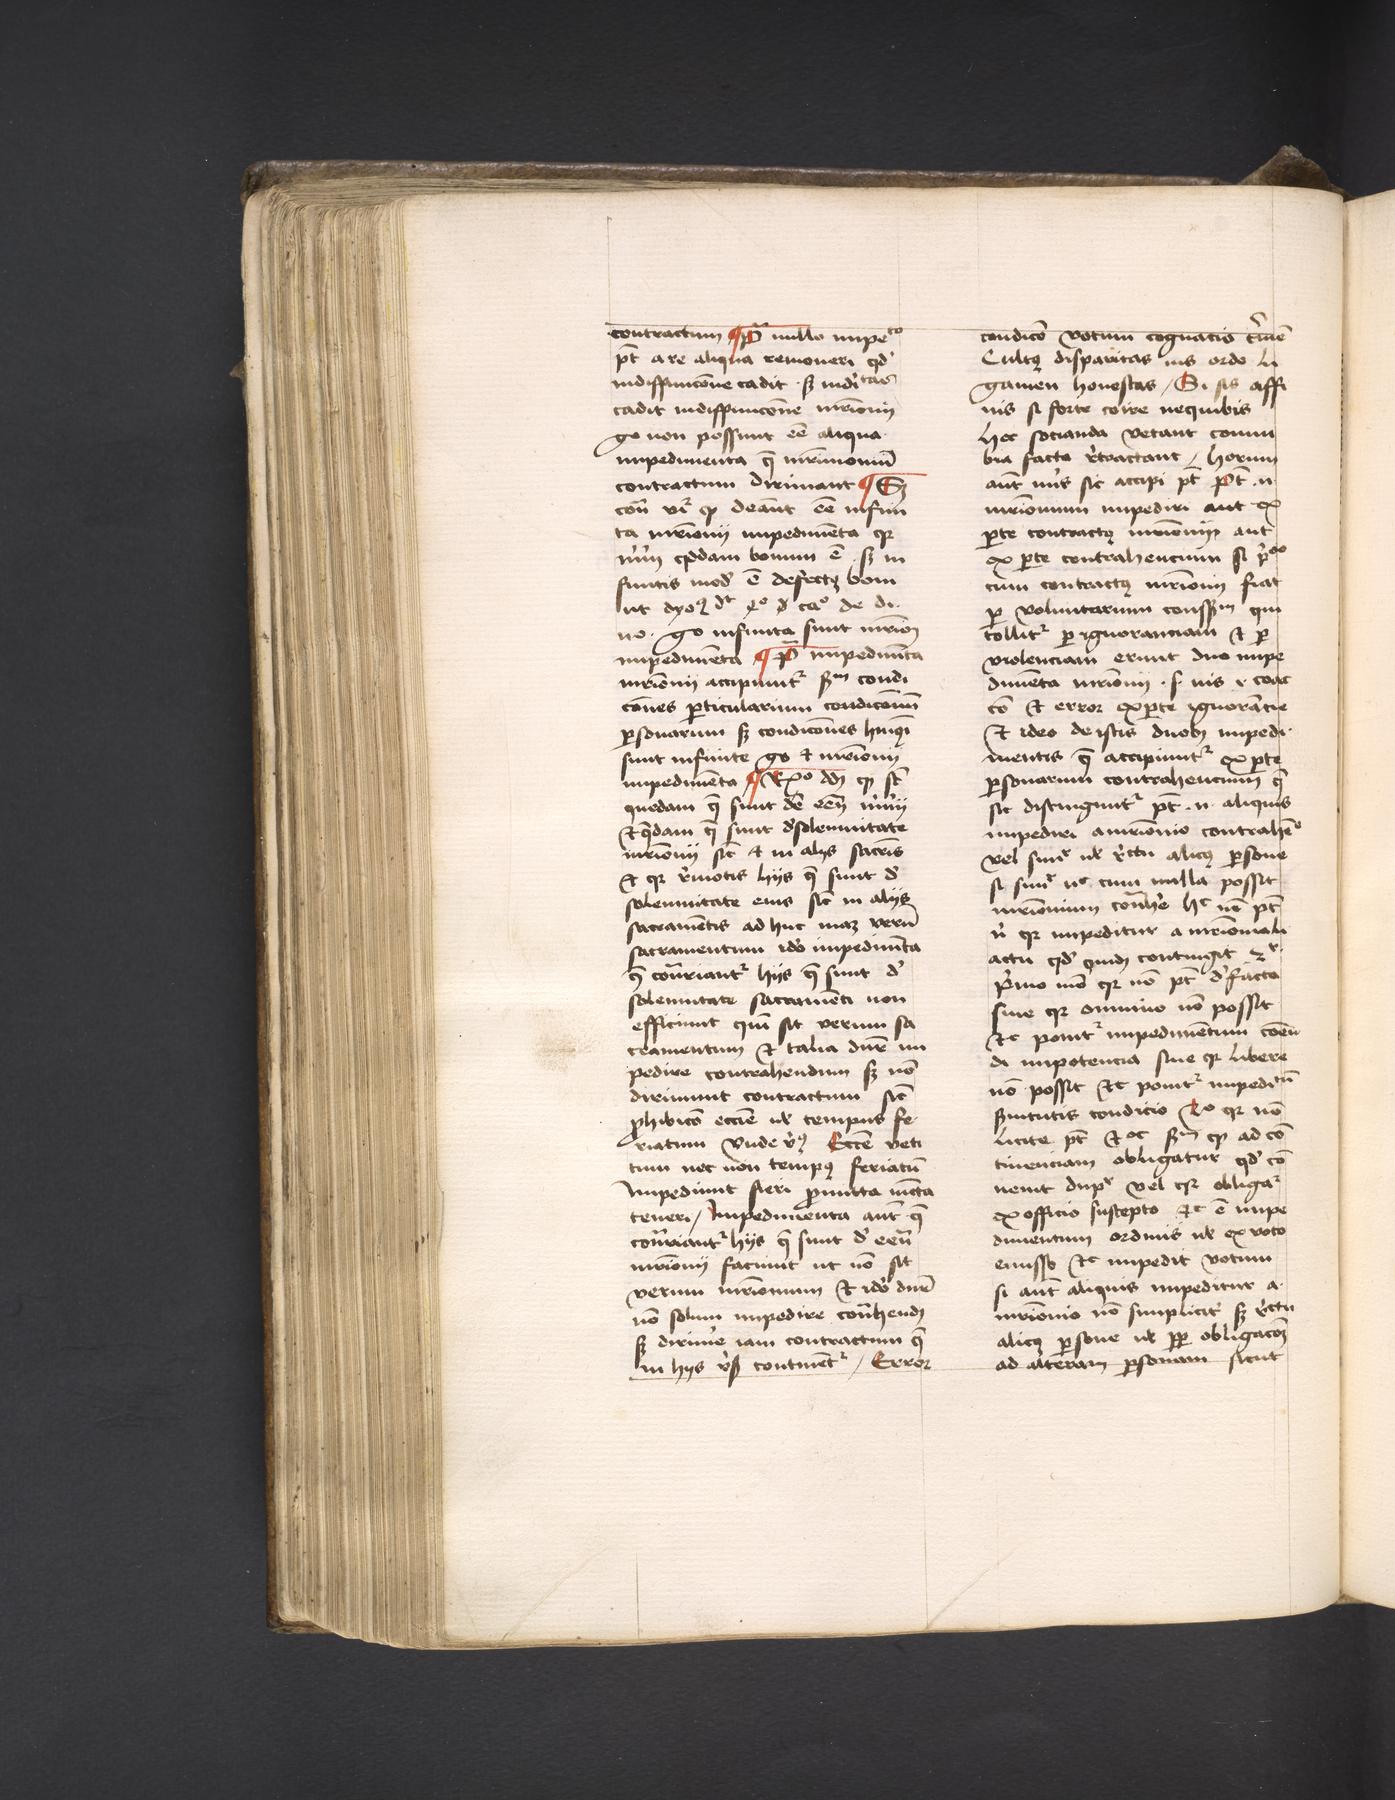 contractum ¶ P̄ nullo impeto
pt̄ a re aliqua remoueri qd'
in diffinicōne cadit . sʒ
cadit in diffinicōne mr̄ionij
go non possunt eē aliqua
impedimenta q̄ mr̄imoniū
contractum dirimant ¶ Sʒ
con̄ vr̄ ꝙ debeant eē infini
ta mr̄ionij impedimēta qr
mr̄im quddam bonum ē . sʒ in
finitis mod' ē defectꝯ boni
ut dyoꝯ dt 4o ca o de di.
no . go infinita sunt mr̄ion̄
impedimēta ¶ P̄ impedimēta
mr̄ionij accipiunt᷑ sm condi
cōnes ꝑticularium condicōnū
ꝑsonarum sʒ condicōnes huiꝯī
sunt infinite go ⁊ mr̄ionij
impedimēta ¶ Rx o dd̄ ꝙ st̄
quedam q̄ sunt de eēn̄ mr̄ij
Et q̄dam q̄ sunt d' solemnitate
mr̄ionij sic̄ ⁊ in alijs sacr̄is
Et qr r̄motis hijs q̄ sunt d'
solemnitate eius sic̄ in alijs
sacramētis adhuc maʒ verū
sacramentum ido impedimēta
q̄ con̄riant᷑ hijs q̄ sunt d'
solemnitate sacramēti non
efficiunt quī sit verum sa
cramentum Et talia dnr̄ im
pedire contrahendum sʒ nō
dirimunt contractum sic̄
ꝓhibicō ecc̄ie ul' tempus fe
riatum Vnde v̄ꝯ Ecc̄ie veti
tum nec non tempꝯ feriatū
Impediunt fieri ꝑmitta iūcta
teneri / Impedimenta aut̄ q̄
con̄riant᷑ hijs q̄ sunt d' eēn̄
mr̄ionij faciunt ut nō sit
verum mr̄ionium Et ido dnr̄
nō solum impedire con̄hendʒ
sʒ dirim'e iam contractum q̄
in hijs v̄sꝰ continēt᷑ / Error
condicō votum cognatio c̄men
Cultꝯ disparitas uis ordo li
gamen honestas / Si sis affi
nis si forte coire nequibis
hec socianda vetant connu
bia facta r̄tractant / horum
aut̄ nūs sic accipi pt̄ Pt̄ . n.
mr̄ionium impediri aut ex
ꝑte contractꝯ mr̄ionij aut
ex ꝑte contrahencium si pro
cum contractꝯ mr̄ionij fiat
ꝑ voluntarium consensm qui
tollit᷑ ꝑ ignoranciam Et ꝑ
violenciam erunt duo impe
dimenta mr̄ionij . s. uis ⁊ coac
cō Et error ex ꝑte ignorācie
Et ideo de istis duobꝯ impedi
mentis q̄ accipiunt᷑ ex ꝑte
ꝑsonarum contrahencium q̄
sic distingunt᷑ pt̄ . n. aliquis
impediri a mr̄ionio contrahēo
vel simr̄ ul' r̄ctu alicꝯ ꝑsone
si simr̄ ut cum nulla possit
mr̄ionium con̄h'e hc non pt̄
n̄ qr impeditur a mr̄ioniali
actu qd' quidʒ contingit 2r.
Primo mō qr nō pt̄ d' facto
siue qr omnino nō possit
Etc ponit᷑ impedimētum coēn
di impotencia siue qr libere
nō possit Etc ponit᷑ impeditū
s̄uitutis condicio 2o qr nō
licite pt̄ Etc sm ꝙ ad cō
tinenciam obligatur qd' cō
uenit dupr̄ vel qr obligar᷑
ex officio suscepto Etc ē impe
dimentum ordinis ul' ex voto
emisso Etc impedit votum
si aut̄ aliquis impeditur a
mr̄ionio nō simplicit' sʒ r̄ctu
alicꝯ ꝑsone ul' ꝓp obligacōʒ
ad alteram ꝑsonam sicut